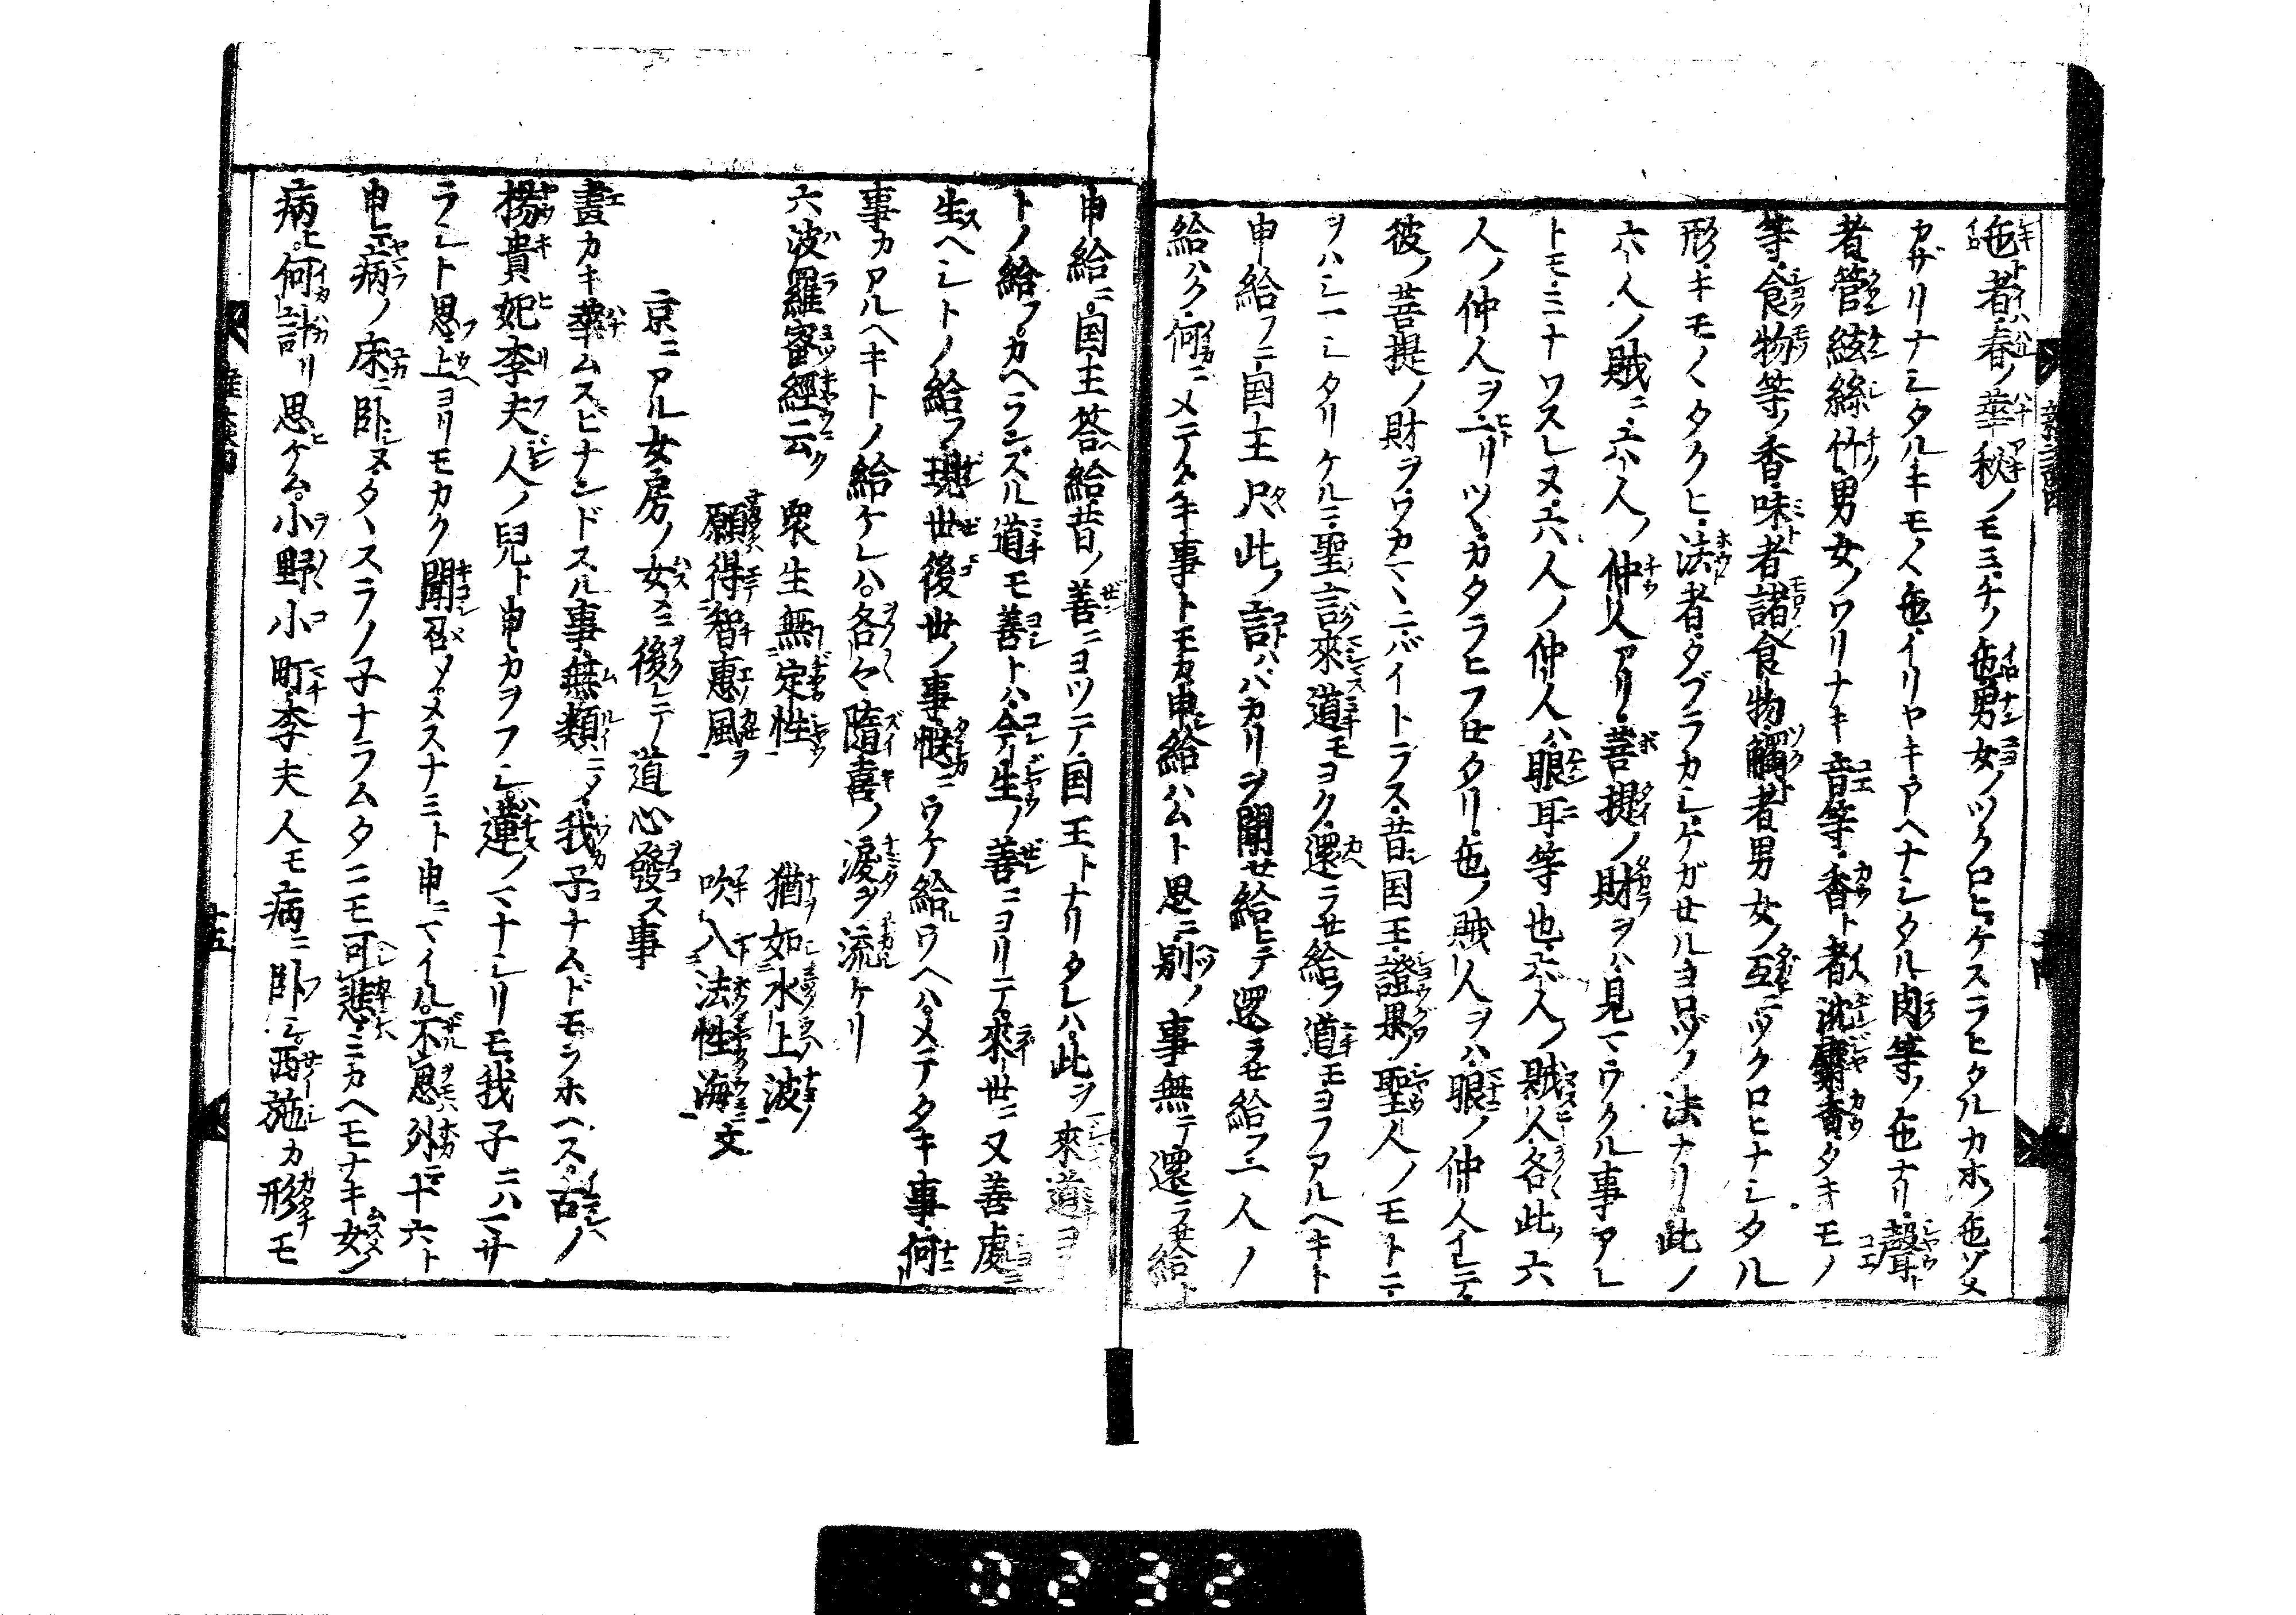 色者春ノ華秋ノモミチノ色男女ノツクロヒケスラヒタルカホノ色ソメ
カザリナシタルキモノヽ色イリヤキアヘナシタル肉等ノ色ナリ聲ト
者管絃絲竹男女ノワリナキ音等香ト者沈麝香タキモノ
等食物等ノ香味ト者諸食物觸者男女ノ互ニツクロヒナシタル
形キモノヽタクヒ法者タブラカシケガセルヨロヅノ法ナリ此ノ
六人ノ賊ニ六人ノ仲人アリ菩提ノ財ヲハ見マウクル事アレ
トモミナワスレヌ六人ノ仲人ハ眼耳等也六人ノ賊人各此ノ六
人ノ仲人ヲ一リツヽカタラヒフセタリ色ノ賊人ヲハ眼ノ仲人イレテ
彼ノ菩提ノ財ヲウカマニバイトラス昔国王證果ノ聖人ノモトニ
ヲハシマシタリケルニ聖言來道モヨク還ラセ給フ道モヨフアルヘキト
申給フニ国王只此ノ言ハバカリヲ聞セ給ヒテ還ラセ給フ一人ノ
給ハク何ニメテタキ事トモカ申給ハムト思ニ別ノ事無テ還ラセ給ト
申給ニ国王答給昔ノ善ニヨツテ国王トナリタレハ此ヲ來道ヨシ
トノ給フカヘランスル道モ善トハ今生ノ善ニヨリテ來世ニ又善處
生ヘシトノ給フ現世後世ノ事慥ニウケ給ワヘハメテタキ事何
事カアルヘキトノ給ケレハ各々隨喜ノ涙ヲ流ケリ
六波羅蜜經云ク 衆生無定性 猶如水上波
願得智惠風 吹入法性海文
京ニアル女房ノ女ニ後レテ道心發ス事
畫カキ華ムスヒナンドスル事無類ニメ我子ナムドモヲホヘス古ノ
楊貴妃李夫人ノ兒ト申カヲフシ蓮ノマナシリモ我子ニハマサ
ラシト思上ヨリモカク聞召ソメスナミト申ニマイル不思外ニ十六ト
申ニ病ノ床ニ臥ヌタヽスラノ子ナラムタニモ可悲ミカヘモナキ女ノ
病ヒ何計リ思ケム小野小町李夫人モ病ニ臥シ西施カ形モ
十五